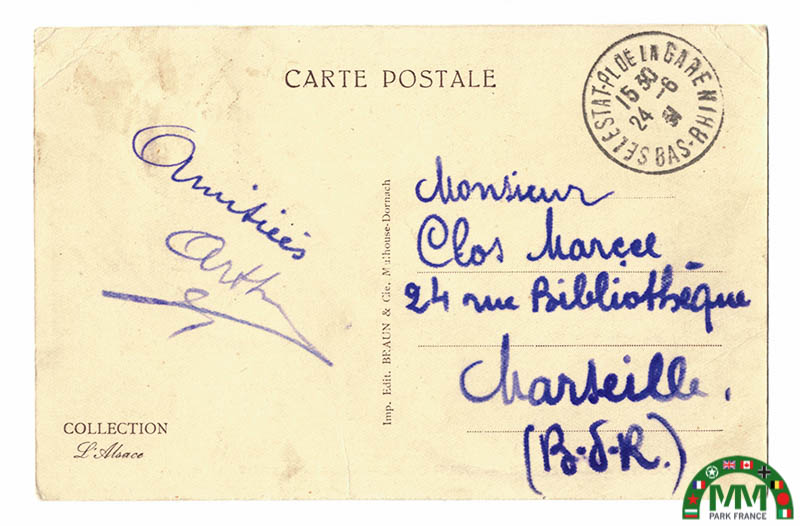 CARTE POSTALE
SELESTAT-PL DE LA GARE
BAS-RHIN
15 30
24
Amitiés
Arthur
Imp. Edit. BRAUN & Cie, Mulhouse-Dornach
Monsieur
Clos Marcel
24 rue Bibliothèque
Marseille.
(B-d-R.)
COLLECTION
L'Alsace
MM
PARK FRANCE